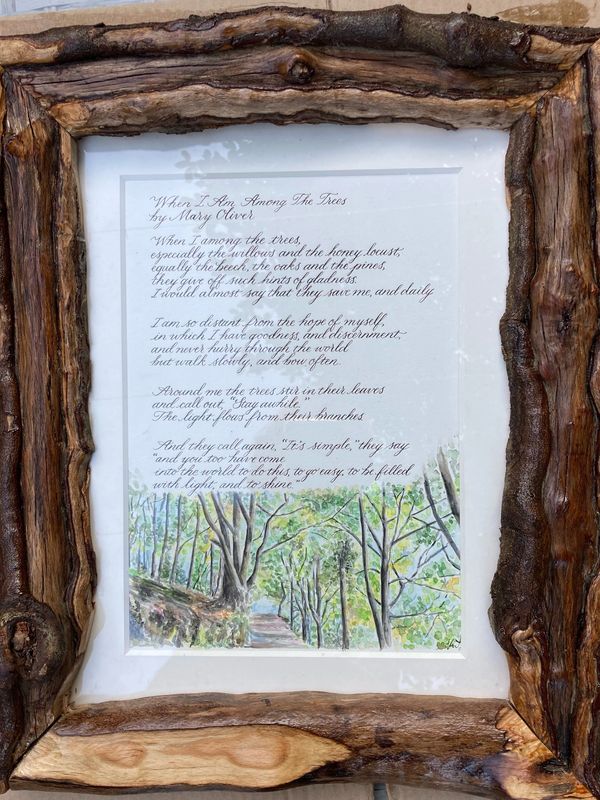 When I Am Among The Trees
by Mary Oliver
When I among the trees,
especially the willows and the honey locust,
equally the beech, the oaks and the pines,
they give off such hints of gladness.
I would almost say that they save me, and daily
I am so distant from the hope of myself,
in which I have goodness, and discernment,
and never hurry through the world
but walk slowly, and bow often.
Around me the trees stir in their leaves
and call out, "Stay awhile."
The light flows from their branches.
And they call again, "It's simple," they say
"and you too have come
into the world to do this, to go easy, to be filled
with light, and to shine."